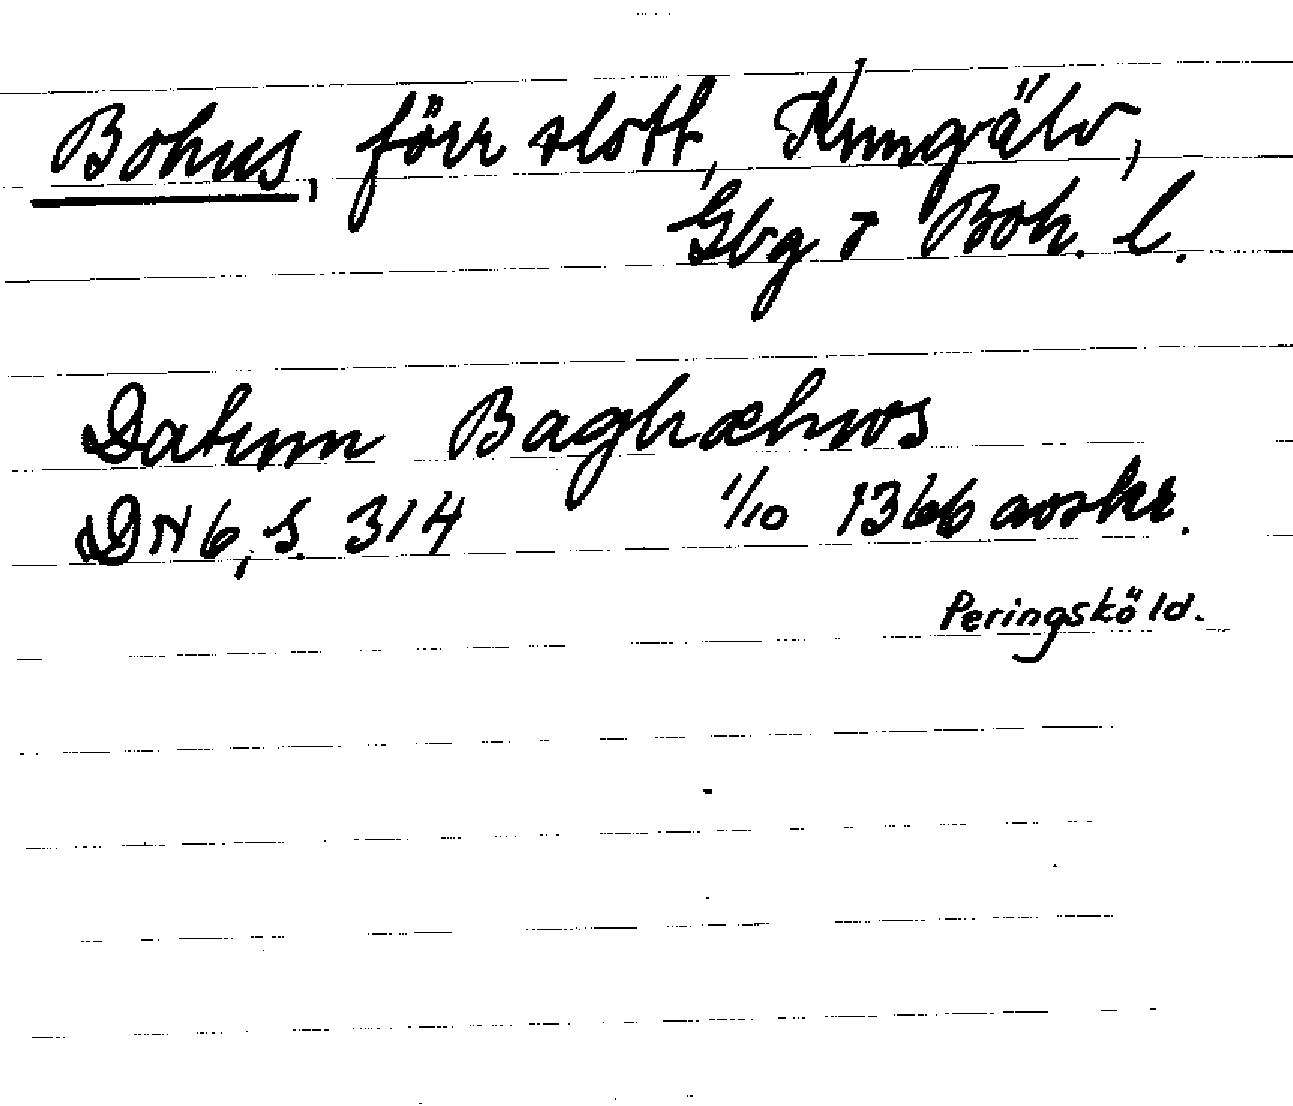 Bohus, förr slott, Kungälv,
Gbg o Boh. l.
Datum Baghæhws
DN 6, s. 314 1/10 1366 avskr.
Peringsköld.